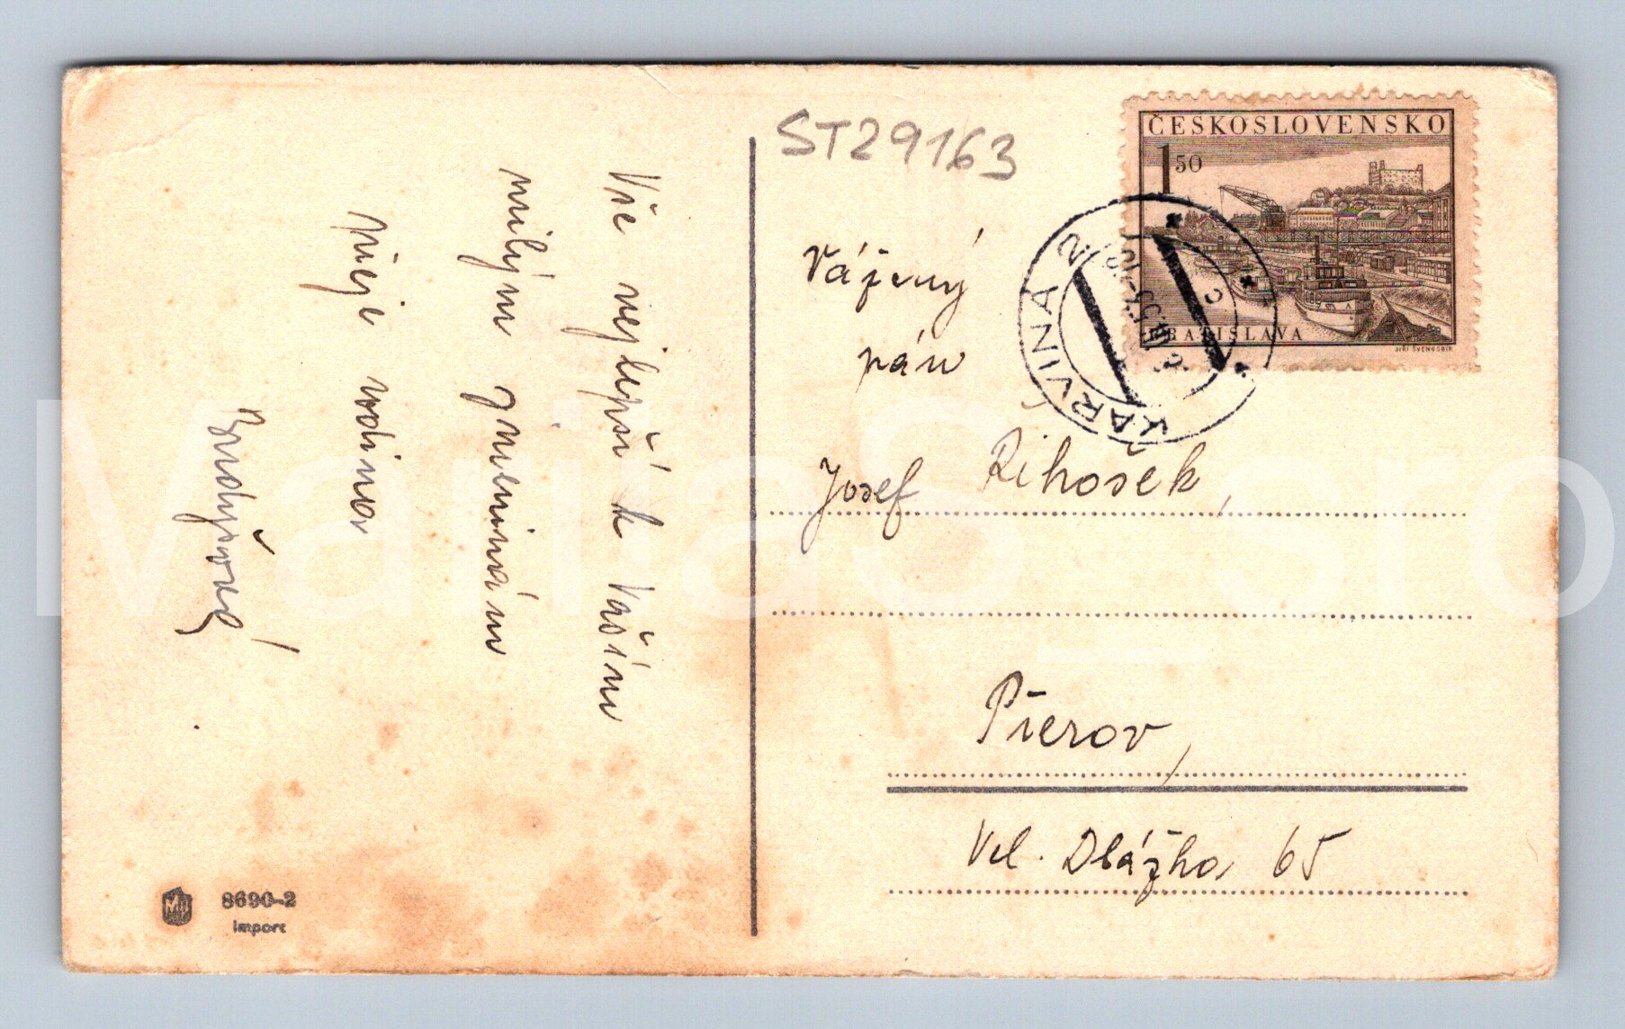 Vše nejlepší k Vašim
milým jmeninám
přeje rodina
ST29163
Vážený
pán
Josef Řihošek,
Přerov,
Vel. Dlážka 65
ČESKOSLOVENSKO
1 50
BRATISLAVA
JIŘÍ ŠVENGSBÍR
KARVINÁ 2
8690-2
Import